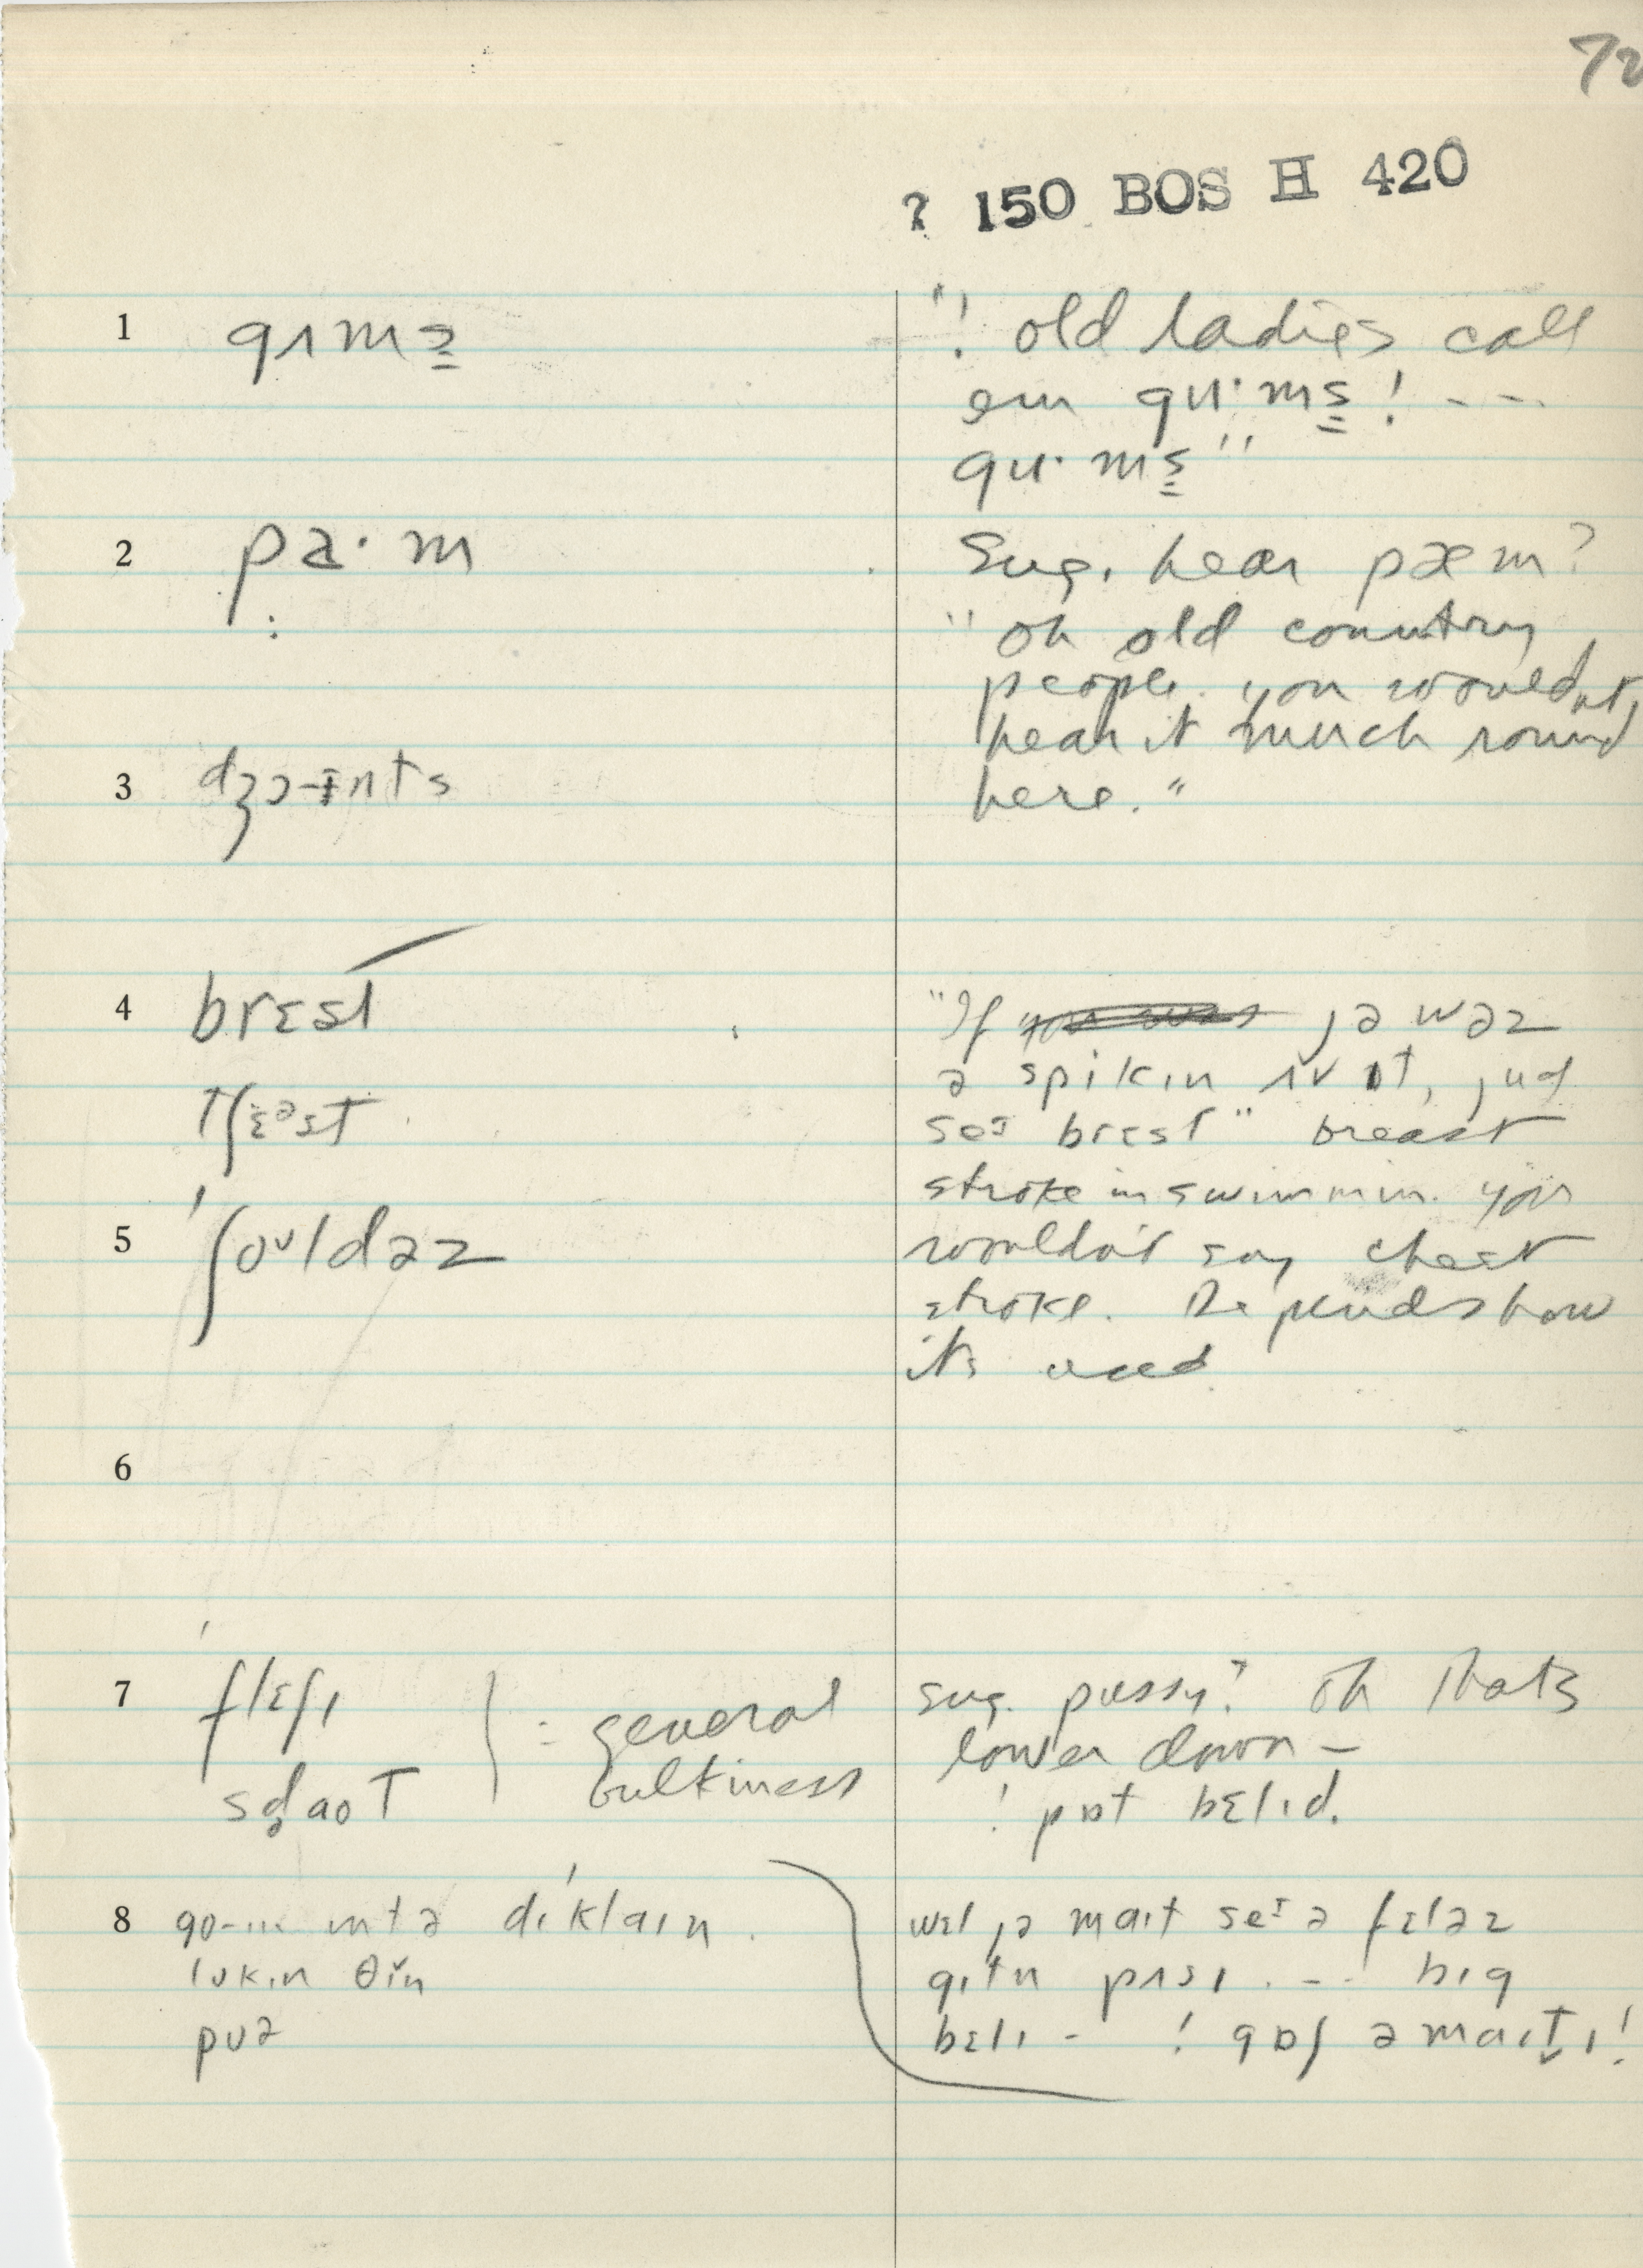 72
? 150 BOS H 420
1 gʌmz̳
"! old ladies call
em gu·mz̳! ---
gu·mz̳"
2 pa·m
Sug. hear pæm?
"oh old country
people. you wouldnt,
hear it much round
here."
3 dʒɔ-ɨnts
4 brɛst
tʃɛᵊst
"If jə wəz
ə spikɪn ʌv ɪt, jud
seɪ brɛst" breast
stroke in swimmin. you
wouldn't say chest
stroke. Depends how
its used
5 ʃoʊldəz
6
7 flɛʃɪ
sd̥aoT
: general
bulkiness
sug. pussy? oh thats
lower down –
! pɒt bɛlɪd.
8 go-ɪn ɪntə dɪ'klaɪn.
lʊkɪn θɪ̆n
pʊə
wɛl jə maɪt seɪ ə fɛləz
gɪtn pʌsɪ. --- bɪg
bɛlɪ - ! gɒʃ əmaɪtɪ!